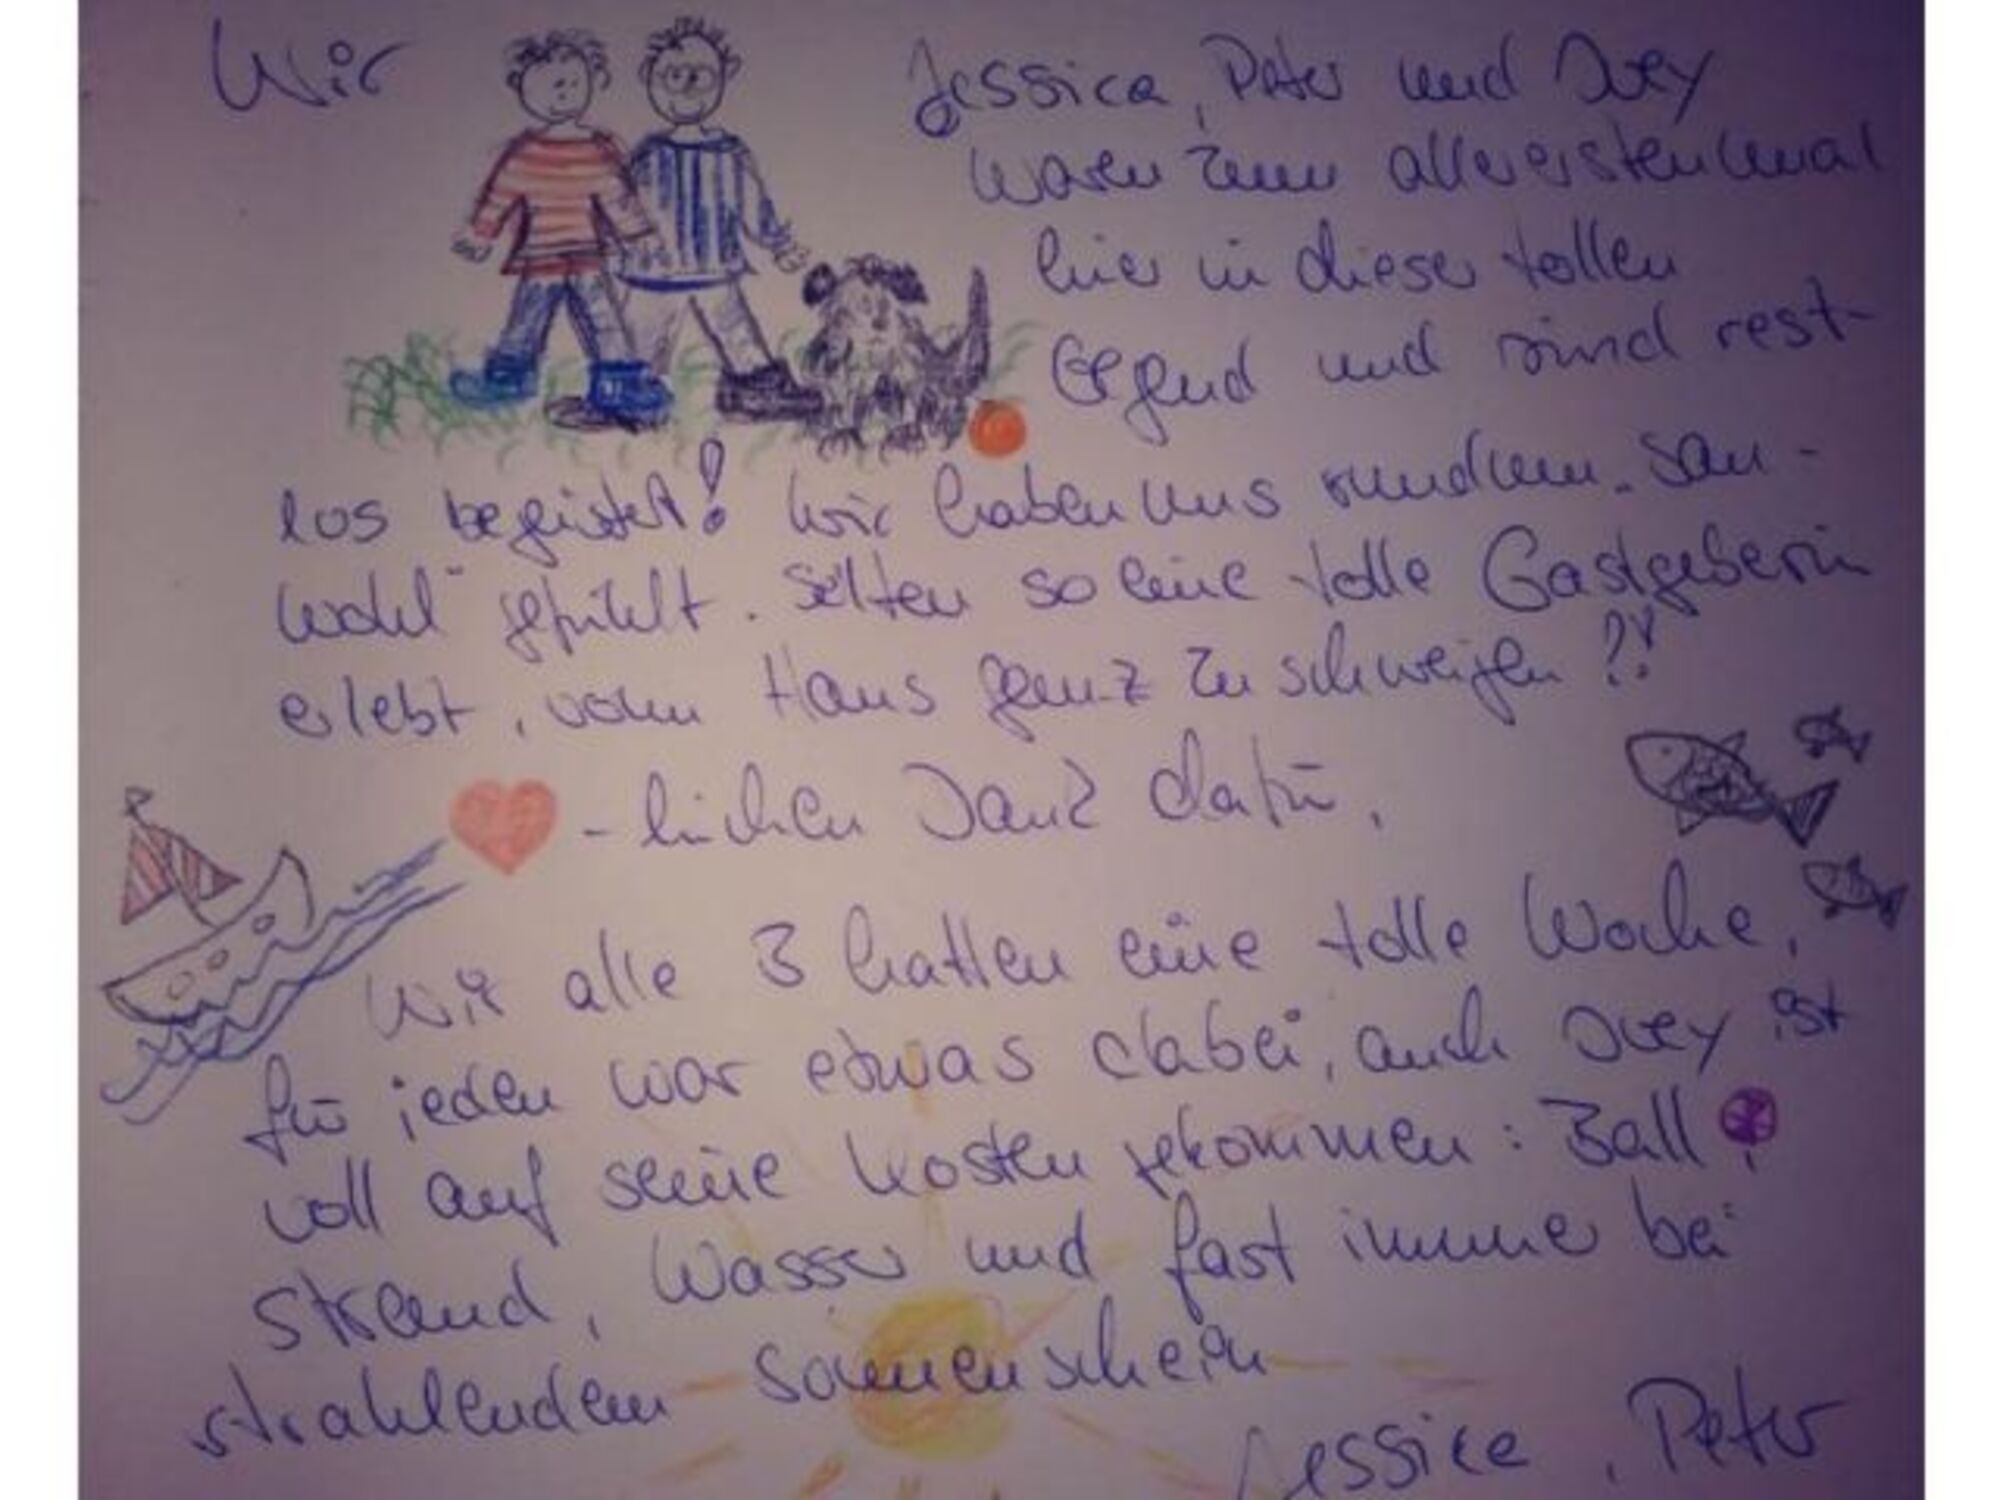 Wir Jessica, Peter und Joey
waren zum allererstenmal
hier in dieser tollen
Gegend und sind rest-
los begeistert! Wir haben uns rundum "sau-
wohl" gefühlt. Selten so eine tolle Gastgeberin
erlebt, vom Haus ganz zu schweigen?!
-lichen Dank dafür,
Wir alle 3 hatten eine tolle Woche,
für jeden war etwas dabei, auch Joey ist
voll auf seine Kosten gekommen: Ball,
Strand, Wasser und fast immer bei
strahlendem Sonnenschein
Jessica, Peter